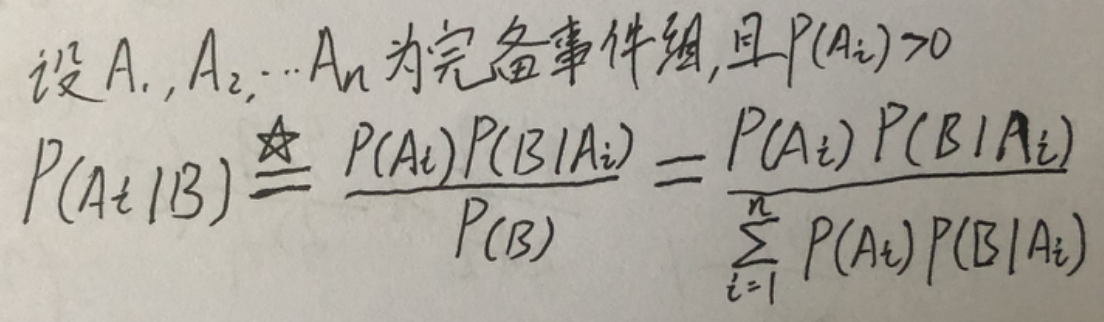 设A₁,A₂,…Aₙ为完备事件组,且P(Aᵢ)>0
P(Aᵢ|B) ☆= P(Aᵢ)P(B|Aᵢ) / P(B) = P(Aᵢ)P(B|Aᵢ) / ∑ⁿᵢ₌₁ P(Aᵢ)P(B|Aᵢ)